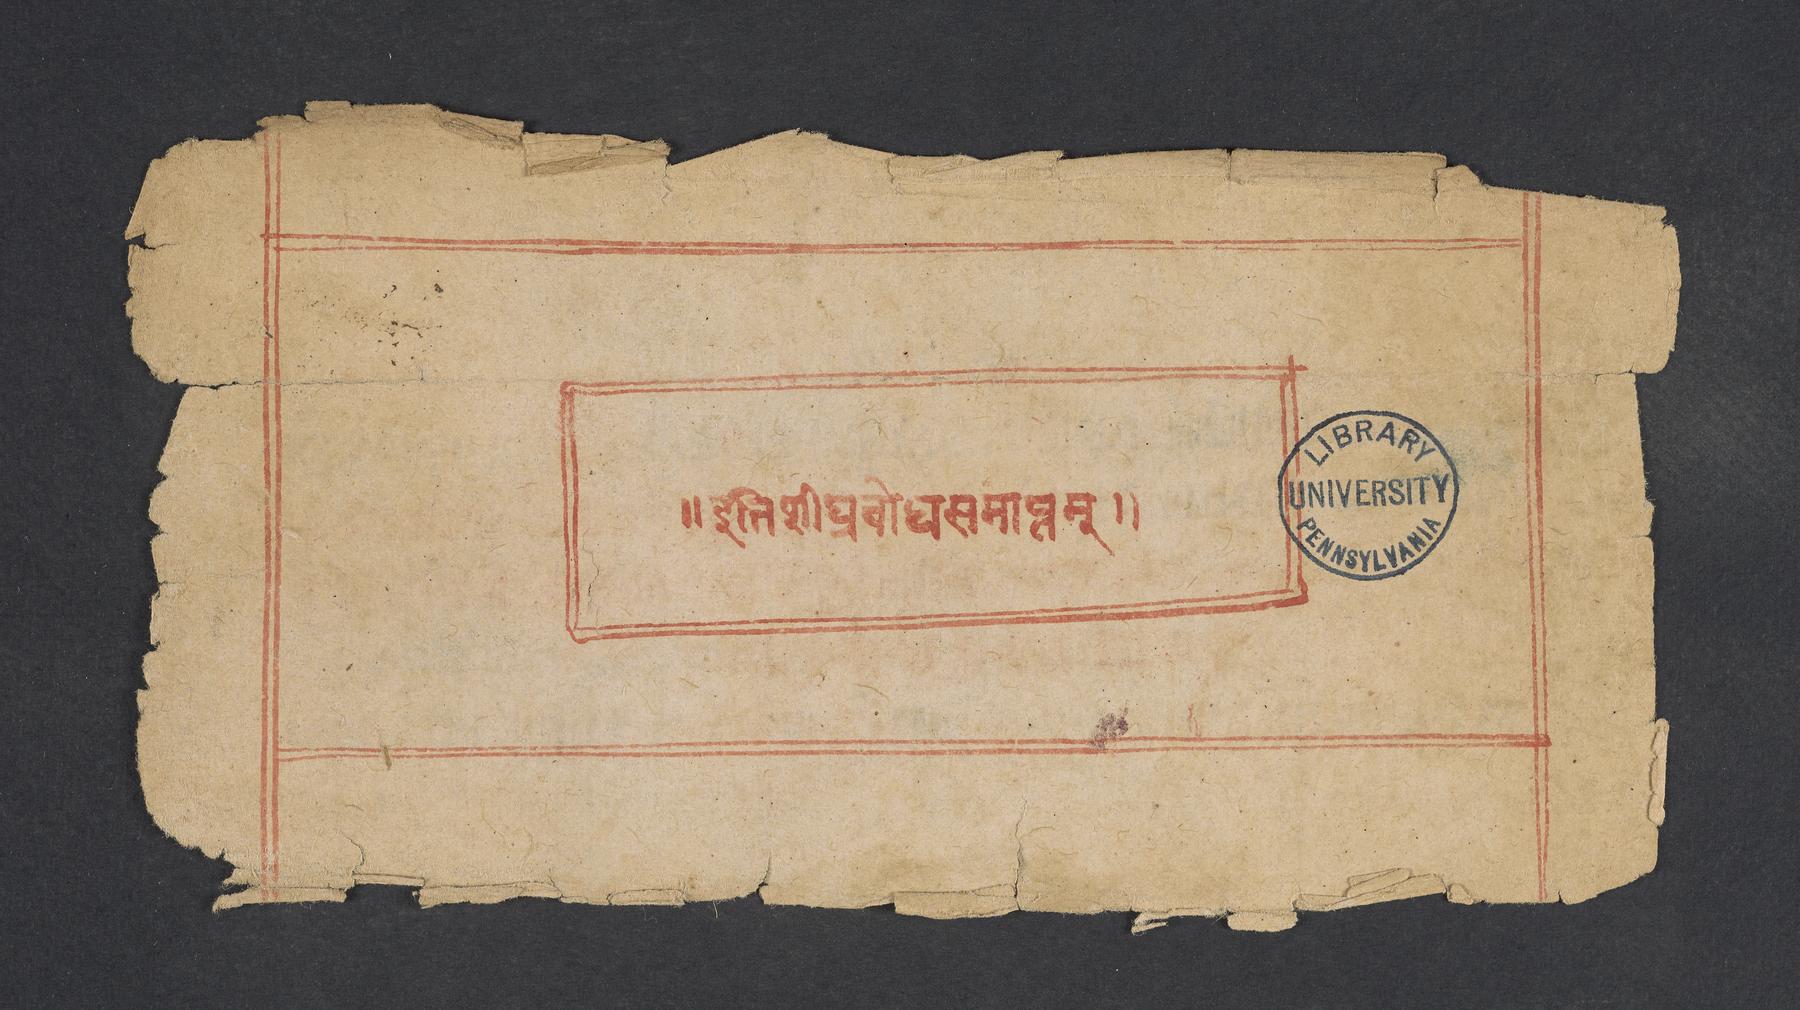 ॥इतिशीघ्रबोधसमाप्तम्॥
LIBRARY
UNIVERSITY
PENNSYLVANIA